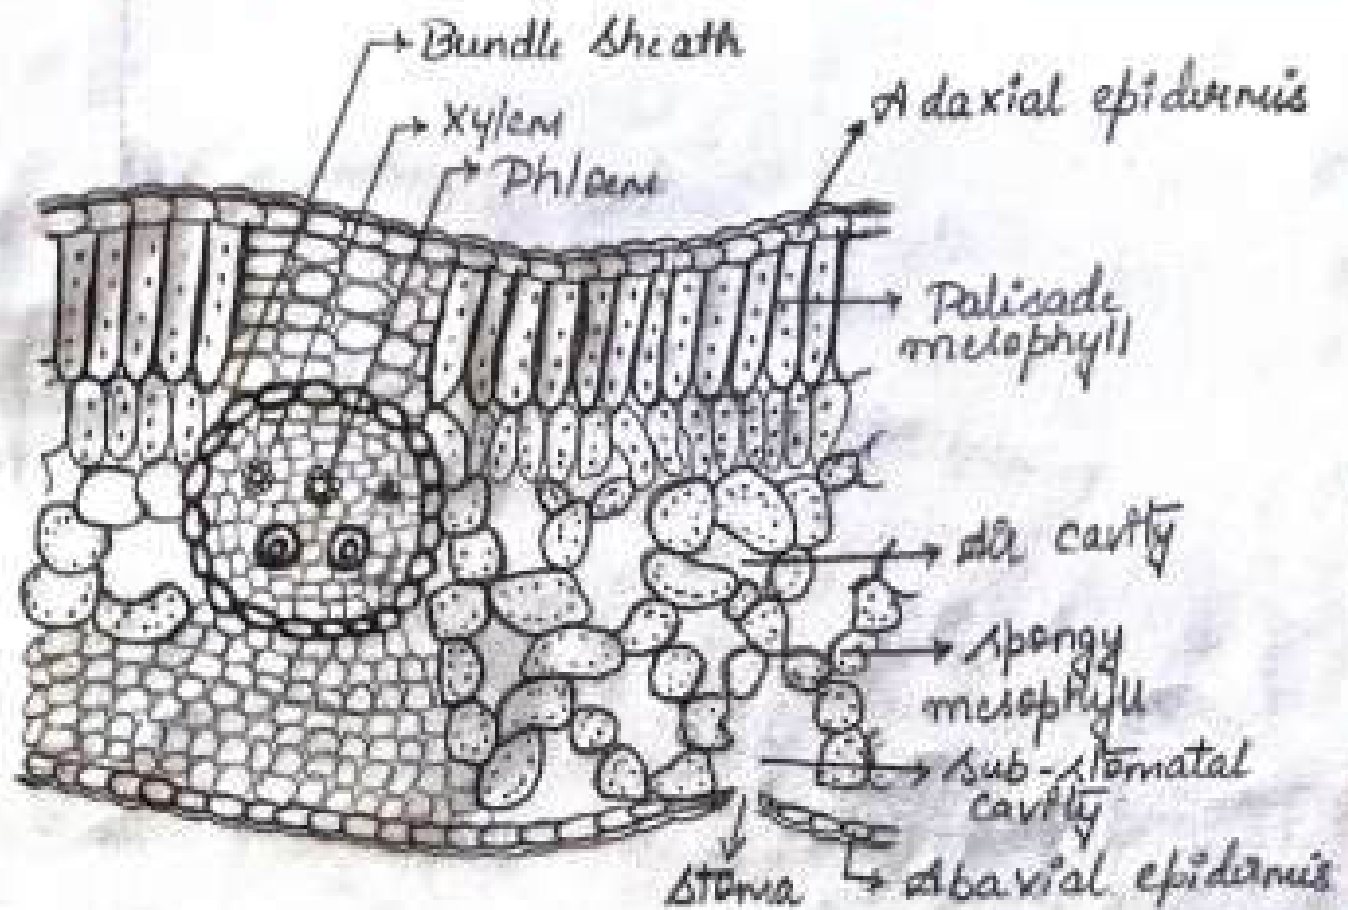 Bundle sheath
Xylem
Phloem
Adaxial epidermis
Palisade
mesophyll
Air cavity
spongy
mesophyll
sub-stomatal
cavity
stoma
Abaxial epidermis